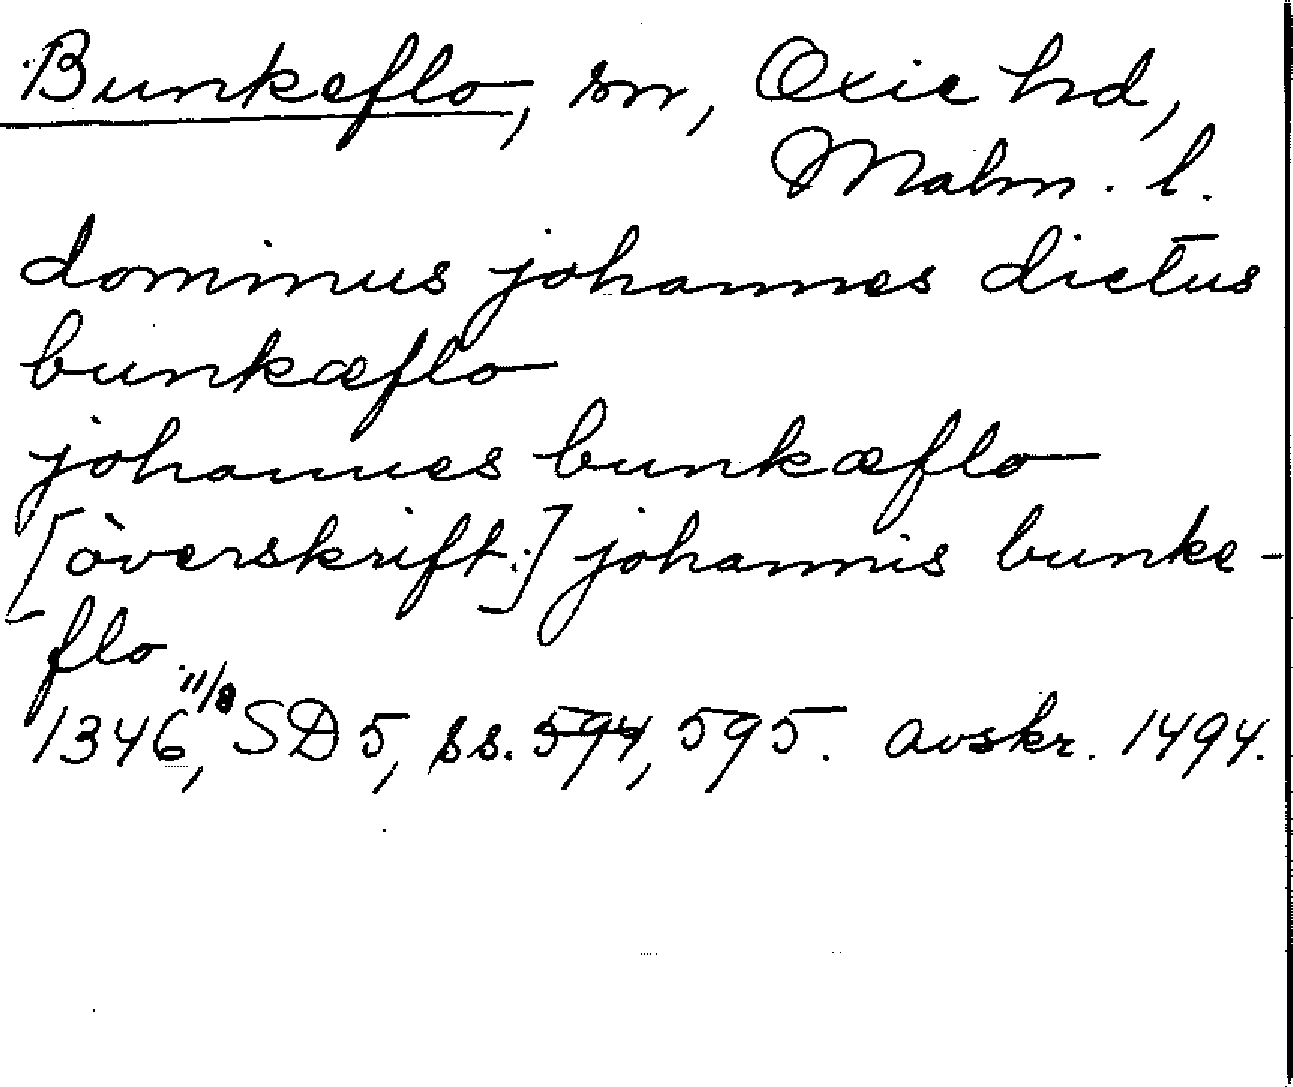 Bunkeflo, sn, Oxie hd,
Malm. l.
dominus johannes dictus
bunkæflo
johannes bunkæflo
[överskift:] johannis bunke-
flo
1346 11/8, SD 5, ss. 594, 595. avskr. 1494.